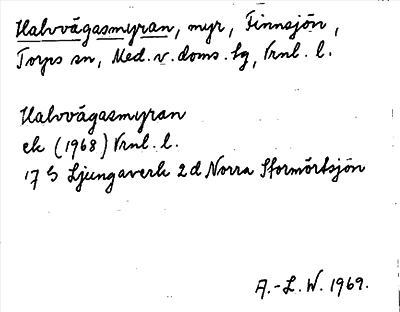 Halvvägasmyran, myr, Finnsjön,
Torps sn, Med.v.doms.sg, Vrnl. l.
Halvvägasmyran
ek (1968) Vrnl. l.
17 G Ljungaverk 2d Norra Stormörtsjön
A.-L.W. 1969.